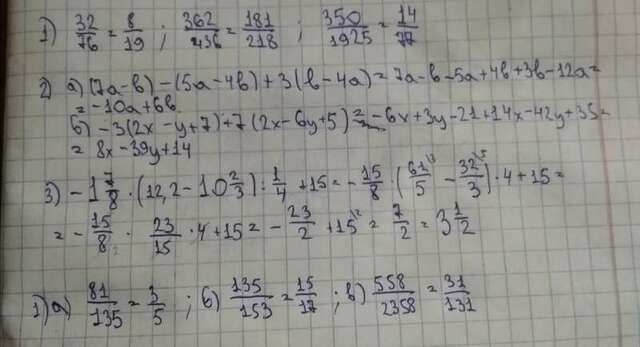 1) 32/76 = 8/19 ; 362/436 = 181/218 ; 350/1925 = 14/77
2) а) (7а-в) - (5а-4в) + 3(в-4а) = 7а-в-5а+4в+3в-12а=
= -10а+6в
б) -3(2x-y+7)+7(2x-6y+5) = -6x+3y-21+14x-42y+35=
= 8x-39y+14
3) -1 7/8 · (12,2-10 2/3) : 1/4 +15 = - 15/8 · (61/5 ³ - 32/3 ⁵) · 4+15=
= - 15/8 · 23/15 · 4+15 = - 23/2 + 15 ² = 7/2 = 3 1/2
1) а) 81/135 = 3/5 ; б) 135/153 = 15/17 ; в) 558/2358 = 31/131